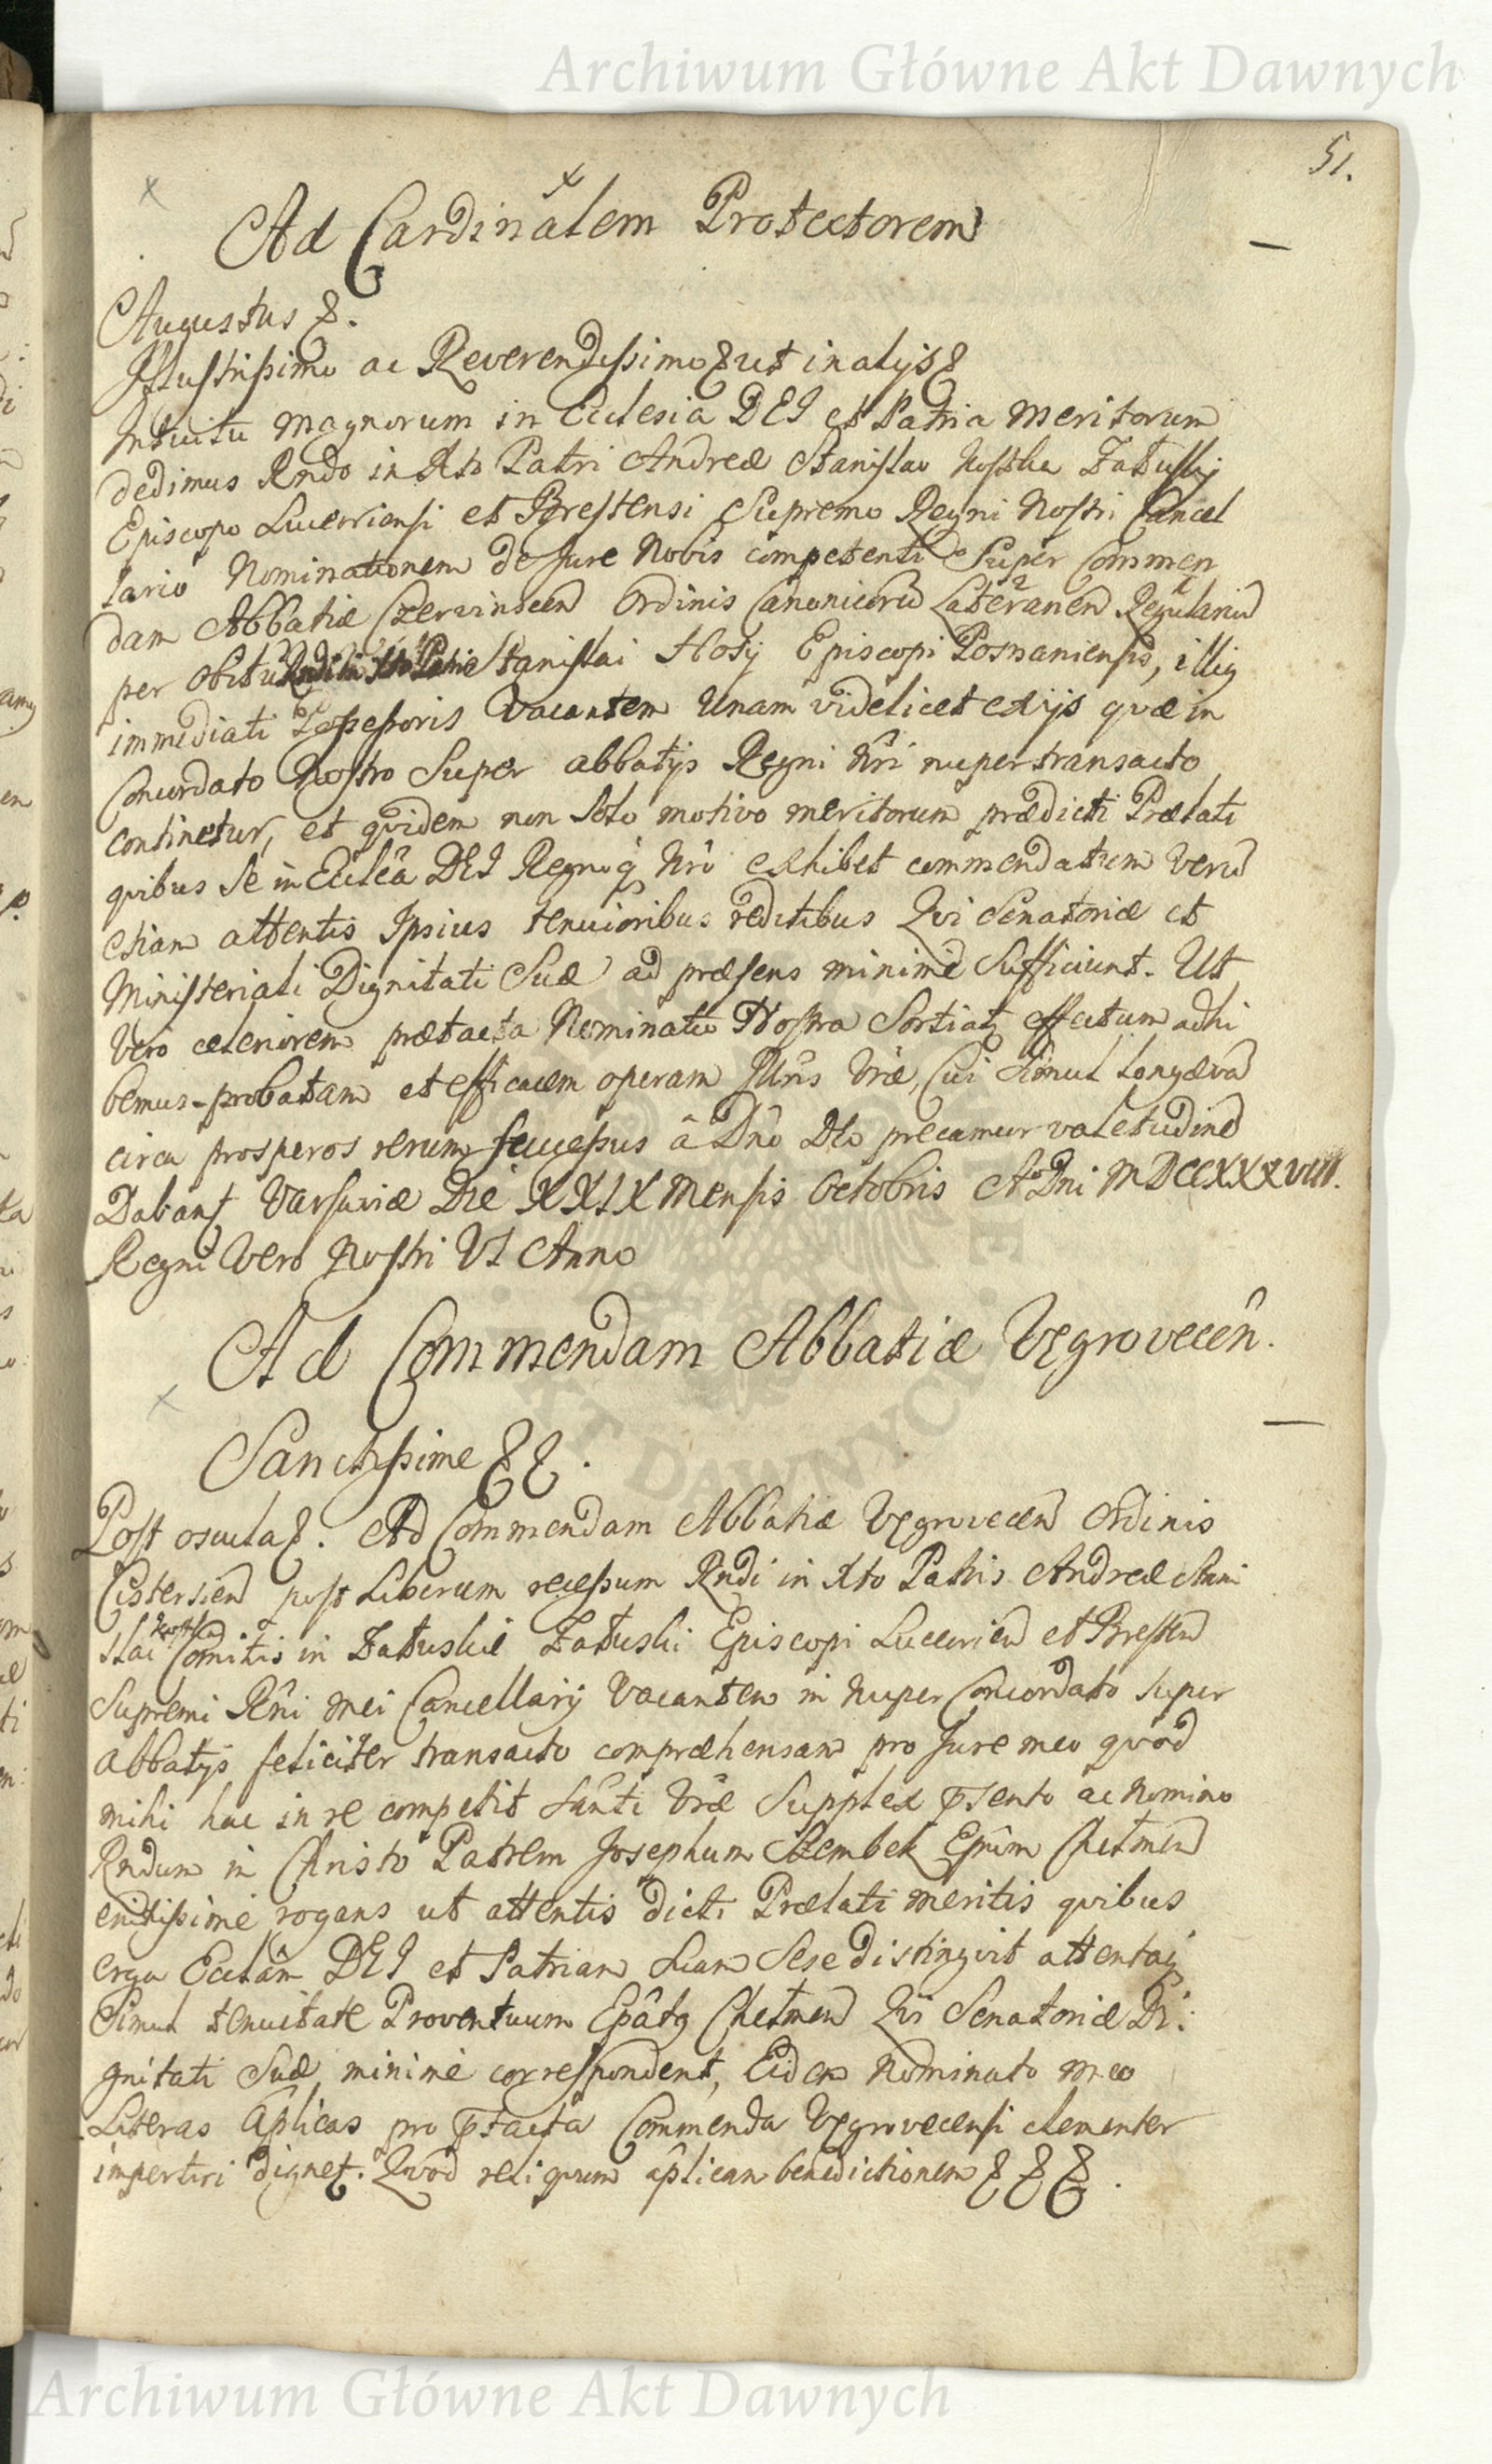 Archiwum Główne Akt Dawnych
51.
Ad Cardinalem Protectorem
Augustus &.
Illustrissimo ac Reverendissimo & ut in alijs &
Intuitu magnorum in Ecclesia DEI et Patria meritorum
dedimus Rndo in Xto Patri Andreæ Stanislao Kostka Załuskj
Episcopo Luceoriensi et Brestensi Supremo Regni Nostri Cancel
lario Nominationem de Jure Nobis competenti Super Commen
dam Abbatiæ Czervinscen Ordinis Canonicorũ Lateranen Regulariũ
per obitũ Stanislai Hosij Episcopi Posnaniensis, illiꝰ
immediati Possessoris vacantem Unam videlicet ex ijs quæ in
Concordato Nostro Super abbatijs Regni Nri nuper transacto
continetur, et quidem non Solo motivo meritorum prædicti Prælati
quibus Se in Ecclêa DEI Regnoq Nrô exhibet commendatum verũ
etiam attentis Ipsius tenuioribus reditibus Qvi Senatoriæ et
Ministeriali Dignitati Suæ ad præsens minimè Sufficiunt. Ut
Vero celeriorem prætacta Nominatio Nostra Sortiatꝛ effectum adhi
bemus probatam et efficacem operam Illrîs Vræ, Cui Simul longævã
circa prosperos rerum Successus â Dnô Deo precamur valetudinẽ
Dabantꝛ Varsaviæ Die XXIX Mensis Octobris Aº Dni MDCCXXXVIII.
Regni Vero Nostri VI Anno
Ad Commendam Abbatiæ Vęgrovecên.
Sanctissime &&.
Post oscula &. Ad Commendam Abbatiæ Vęgrovecen Ordinis
Cistersien post Liberum recessum Rndi in Xto Patris Andreæ Stani
slai Kostka Comitis in Załuskie Załuski Episcopi Luceorien et Bresten
Supremi Rñi mei Cancellarij vacantem in nuper Concordato Super
abbatijs feliciter transacto compræhensam pro Jure meo quod
mihi hac in re competit Sañti Vræ Supplex pręsento ac nomino
Rndum in Christo Patrem Josephum Szembek Epũm Chelmen
enixissime rogans ut attentis dicti Prælati meritis quibus
erga Ecclâm DEI et Patriam Suam Sese distinguit attentaq
Simul tenuitate Proventuum Epâtꝰ Chelmen Qvi Senatoriæ Di:
gnitati Suæ minimè correspondent, Eidem Nominato meo
Literas Aplicas pro prętacta Commenda Vęgrovecensi clementer
impertiri dignetꝛ. Quod reliquum aplicam benedictionem &&&.
Archiwum Główne Akt Dawnych